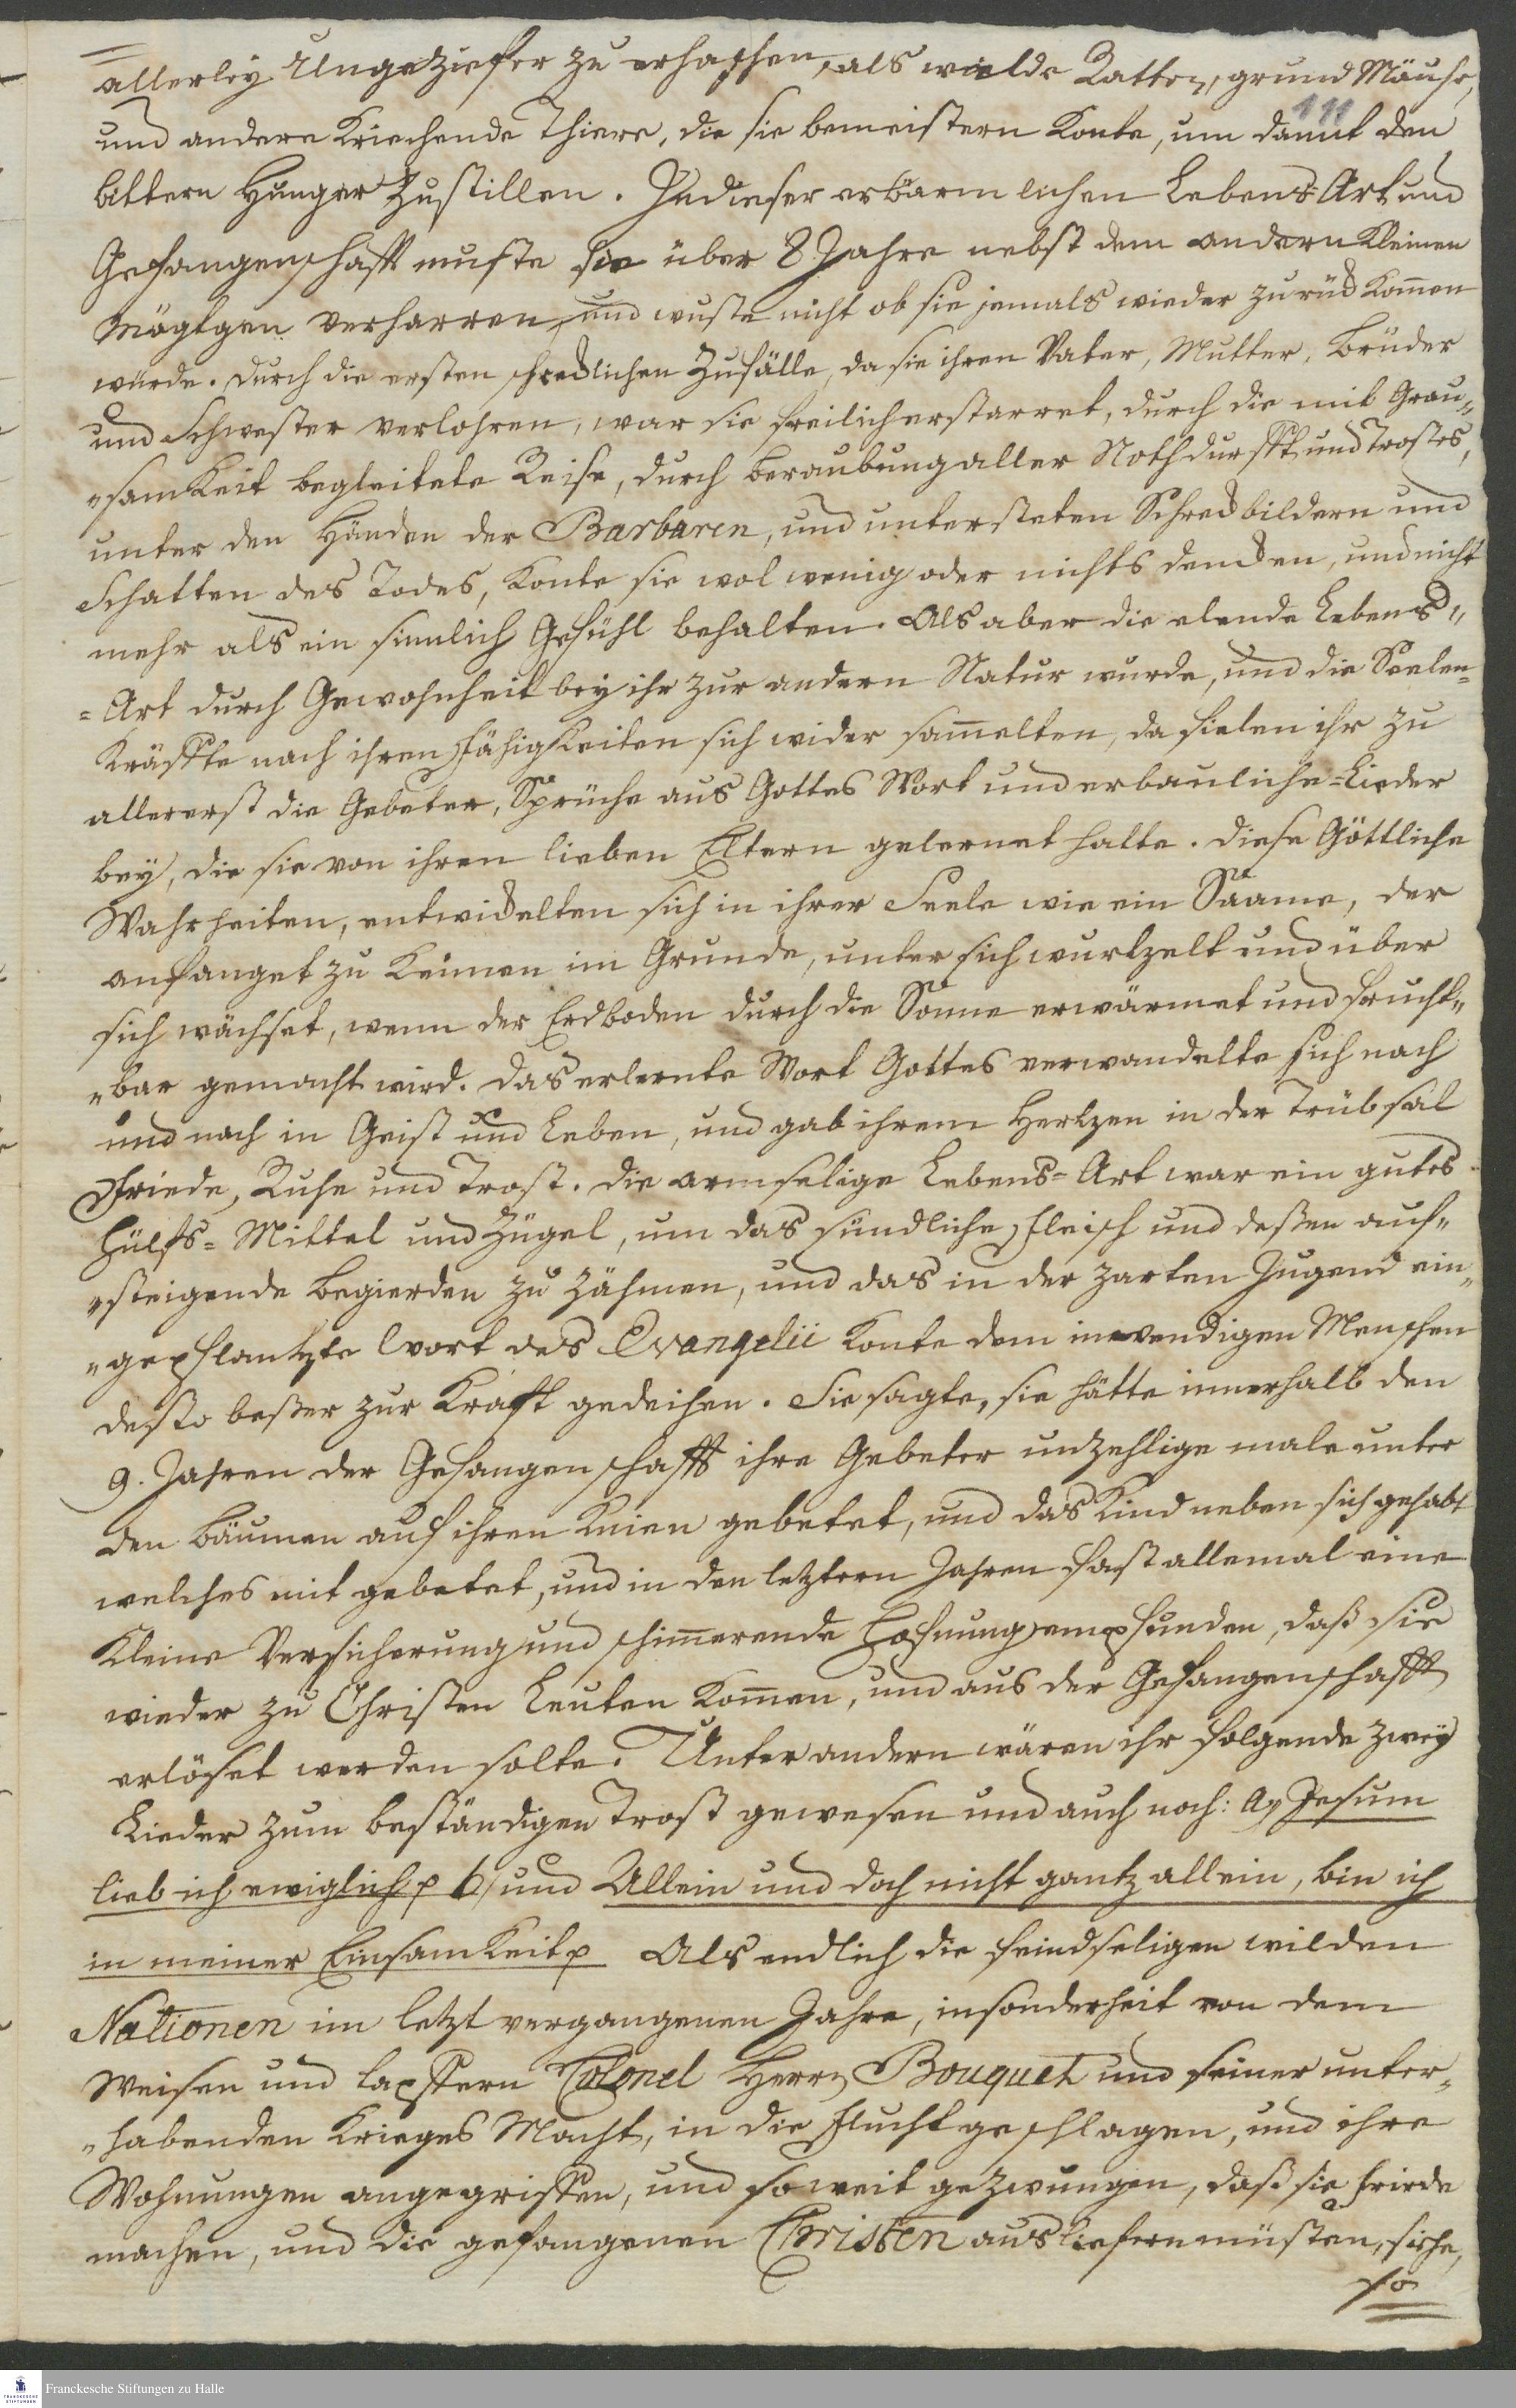 allerley Ungeziefer zu erhaschen, als wilde Ratten, grund Mäuse,
111
und andere kriechende Thiere, die sie bemeistern konte, um damit den
bittern Hunger zu stillen. In dieser erbärmlichen Lebens-Art und
Gefangenschafft muste sie über 8 Jahre nebst dem andern kleinen
Mägtgen verharren, und wuste nicht ob sie jemals wieder zurück kom̅en
würde. Durch die ersten schrecklichen Zufälle, da sie ihren Vater, Mutter, Brüder
und Schwester verlohren, war sie freilich erstarret, durch die mit Grau„
„samkeit begleitete Reise, durch Beraubung aller Nothdurfft und Trostes,
unter den Händen der Barbaren, und unter steten Schreckbildern und
Schatten des Todes, konte sie wol wenig oder nichts dencken, und nicht
mehr als ein sinnlich Gefühl behalten. Als aber die elende Lebens„
=Art durch Gewohnheit bey ihr zur andern Natur wurde, und die Seelen=
Kräffte nach ihren Fähigkeiten sich wider sam̅elten, da fielen ihr zu
allererst die Gebeter, Sprüche aus Gottes Wort und erbauliche=Lieder
bey, die sie von ihren lieben Eltern gelernet hatte. Diese Göttliche
Wahrheiten, entwickelten sich in ihrer Seele wie ein Saame, der
anfanget zu keimen im Grunde, unter sich wurtzelt und über
sich wächset, wenn der Erdboden durch die Sonne erwärmet und frucht„
„bar gemacht wird. Das erlernte Wort Gottes verwandelte sich nach
und nach in Geist und Leben, und gab ihrem Hertzen in der Trübsal
Friede, Ruhe und Trost. Die armselige Lebens=Art war ein gutes
Hülfs=Mittel und Zügel, um das sündliche Fleisch und deßen auf„
„steigende Begierden zu zähmen, und das in der zarten Jugend ein„
„gepflantzte Wort des Evangelii konte dem inwendigen Menschen
desto beßer zur Krafft gedeihen. Sie sagte, sie hätte innerhalb den
9. Jahren der Gefangenschafft ihre Gebeter unzehlige male unter
den Bäumen auf ihren Knien gebetet, und das Kind neben sich gehabt
welches mit gebetet, und in den letztern Jahren fast allemal eine
kleine Versicherung und schim̅erende Hofnung empfunden, daß sie
wieder zu Christen Leuten kom̅en, und aus der Gefangenschafft
erlöset werden solte. Unter andern wären ihr folgende zwey
Lieder zum beständigen Trost gewesen und auch noch: a) Jesum
lieb ich ewiglich p b) und Allein und doch nicht gantz allein, bin ich
in meiner Einsamkeit p Als endlich die feindseligen wilden
Nationen im letzt vergangenen Jahre, insonderheit von dem
Weisen und tapffern Colonel Herrn Bouquet und seiner unter„
„habenden Krieges Macht, in die Flucht geschlagen, und ihre
Wohnungen angegriffen, und so weit gezwungen, daß sie Friede
machen, und die gefangenen Christen ausliefern müsten, siehe,
so
Franckesche Stiftungen zu Halle